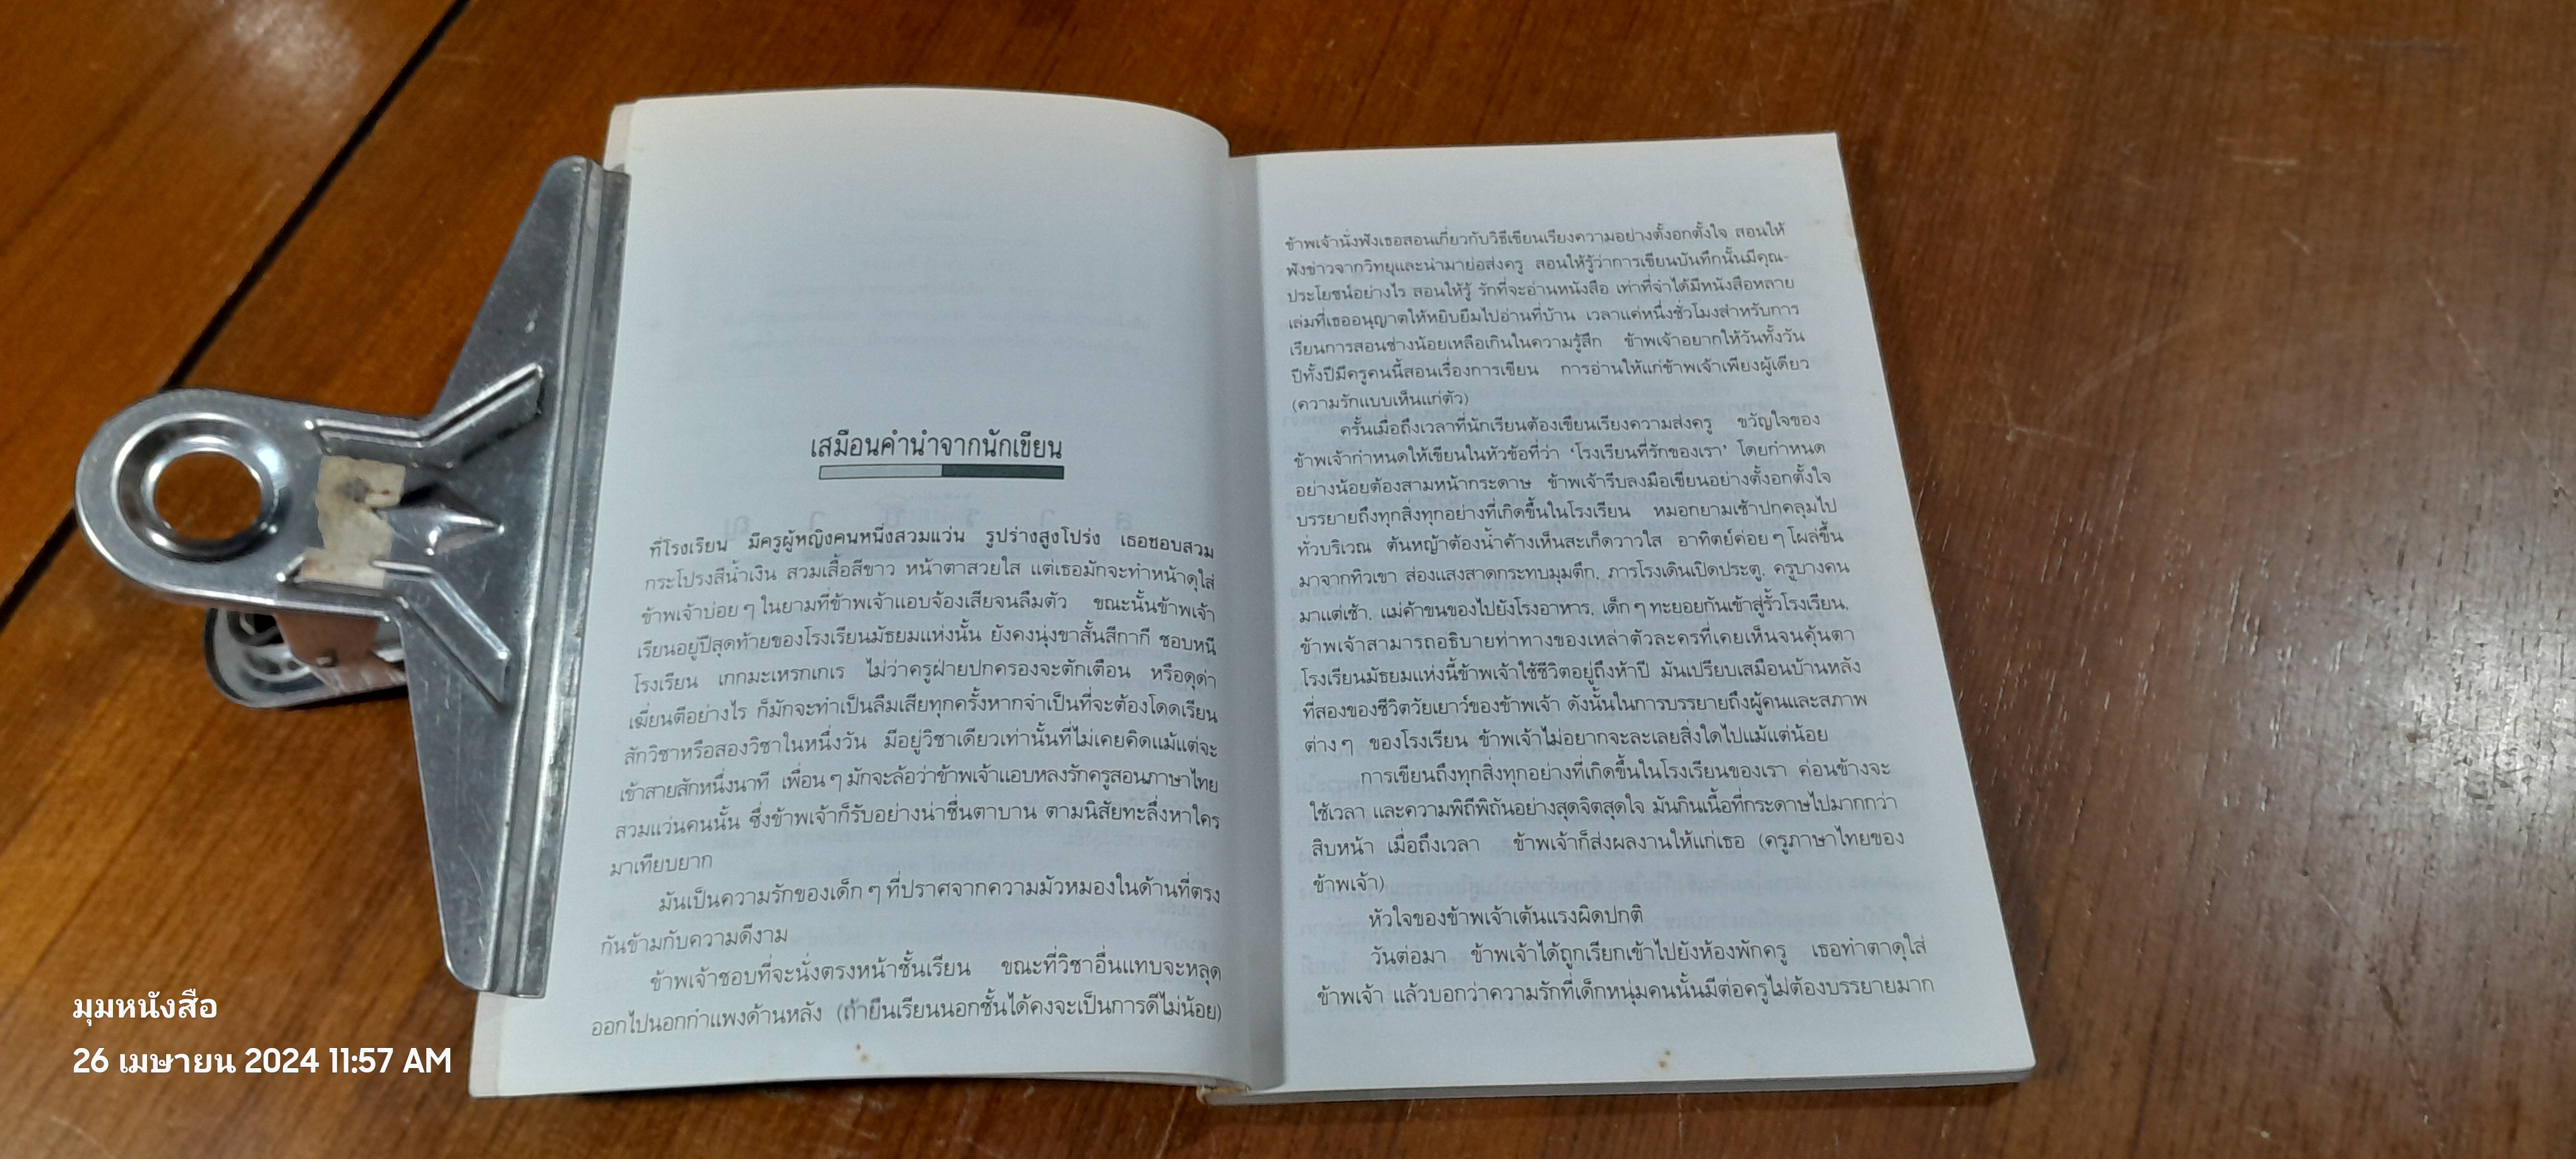 เสมือนคำนำจากนักเขียน
ที่โรงเรียน มีครูผู้หญิงคนหนึ่งสวมแว่น รูปร่างสูงโปร่ง เธอชอบสวม
กระโปรงสีน้ำเงิน สวมเสื้อสีขาว หน้าตาสวยใส แต่เธอมักจะทำหน้าดุใส่
ข้าพเจ้าบ่อย ๆ ในยามที่ข้าพเจ้าแอบจ้องเสียจนลืมตัว ขณะนั้นข้าพเจ้า
เรียนอยู่ปีสุดท้ายของโรงเรียนมัธยมแห่งนั้น ยังคงนุ่งขาสั้นสีกากี ชอบหนี
โรงเรียน เกกมะเหรกเกเร ไม่ว่าครูฝ่ายปกครองจะตักเตือน หรือดุด่า
เฆี่ยนตีอย่างไร ก็มักจะทำเป็นลืมเสียทุกครั้งหากจำเป็นที่จะต้องโดดเรียน
สักวิชาหรือสองวิชาในหนึ่งวัน มีอยู่วิชาเดียวเท่านั้นที่ไม่เคยคิดแม้แต่จะ
เข้าสายสักหนึ่งนาที เพื่อน ๆ มักจะล้อว่าข้าพเจ้าแอบหลงรักครูสอนภาษาไทย
สวมแว่นคนนั้น ซึ่งข้าพเจ้าก็รับอย่างน่าชื่นตาบาน ตามนิสัยทะลึ่งหาใคร
มาเทียบยาก
มันเป็นความรักของเด็ก ๆ ที่ปราศจากความมัวหมองในด้านที่ตรง
กันข้ามกับความดีงาม
ข้าพเจ้าชอบที่จะนั่งตรงหน้าชั้นเรียน ขณะที่วิชาอื่นแทบจะหลุด
ออกไปนอกกำแพงด้านหลัง (ถ้ายืนเรียนนอกชั้นได้คงจะเป็นการดีไม่น้อย)
ข้าพเจ้านั่งฟังเธอสอนเกี่ยวกับวิธีเขียนเรียงความอย่างตั้งอกตั้งใจ สอนให้
ฟังข่าวจากวิทยุและนำมาย่อส่งครู สอนให้รู้ว่าการเขียนบันทึกนั้นมีคุณ-
ประโยชน์อย่างไร สอนให้รู้ รักที่จะอ่านหนังสือ เท่าที่จำได้มีหนังสือหลาย
เล่มที่เธออนุญาตให้หยิบยืมไปอ่านที่บ้าน เวลาแค่หนึ่งชั่วโมงสำหรับการ
เรียนการสอนช่างน้อยเหลือเกินในความรู้สึก ข้าพเจ้าอยากให้วันทั้งวัน
ปีทั้งปีมีครูคนนี้สอนเรื่องการเขียน การอ่านให้แก่ข้าพเจ้าเพียงผู้เดียว
(ความรักแบบเห็นแก่ตัว)
ครั้นเมื่อถึงเวลาที่นักเรียนต้องเขียนเรียงความส่งครู ขวัญใจของ
ข้าพเจ้ากำหนดให้เขียนในหัวข้อที่ว่า ‘โรงเรียนที่รักของเรา’ โดยกำหนด
อย่างน้อยต้องสามหน้ากระดาษ ข้าพเจ้ารีบลงมือเขียนอย่างตั้งอกตั้งใจ
บรรยายถึงทุกสิ่งทุกอย่างที่เกิดขึ้นในโรงเรียน หมอกยามเช้าปกคลุมไป
ทั่วบริเวณ ต้นหญ้าต้องน้ำค้างเห็นสะเก็ดวาวใส อาทิตย์ค่อย ๆ โผล่ขึ้น
มาจากทิวเขา ส่องแสงสาดกระทบมุมตึก, ภารโรงเดินเปิดประตู, ครูบางคน
มาแต่เช้า, แม่ค้าขนของไปยังโรงอาหาร, เด็ก ๆ ทะยอยกันเข้าสู่รั้วโรงเรียน,
ข้าพเจ้าสามารถอธิบายท่าทางของเหล่าตัวละครที่เคยเห็นจนคุ้นตา
โรงเรียนมัธยมแห่งนี้ข้าพเจ้าใช้ชีวิตอยู่ถึงห้าปี มันเปรียบเสมือนบ้านหลัง
ที่สองของชีวิตวัยเยาว์ของข้าพเจ้า ดังนั้นในการบรรยายถึงผู้คนและสภาพ
ต่าง ๆ ของโรงเรียน ข้าพเจ้าไม่อยากจะละเลยสิ่งใดไปแม้แต่น้อย
การเขียนถึงทุกสิ่งทุกอย่างที่เกิดขึ้นในโรงเรียนของเรา ค่อนข้างจะ
ใช้เวลา และความพิถีพิถันอย่างสุดจิตสุดใจ มันกินเนื้อที่กระดาษไปมากกว่า
สิบหน้า เมื่อถึงเวลา ข้าพเจ้าก็ส่งผลงานให้แก่เธอ (ครูภาษาไทยของ
ข้าพเจ้า)
หัวใจของข้าพเจ้าเต้นแรงผิดปกติ
วันต่อมา ข้าพเจ้าได้ถูกเรียกเข้าไปยังห้องพักครู เธอทำตาดุใส่
ข้าพเจ้า แล้วบอกว่าความรักที่เด็กหนุ่มคนนั้นมีต่อครูไม่ต้องบรรยายมาก
มุมหนังสือ
26 เมษายน 2024 11:57 AM